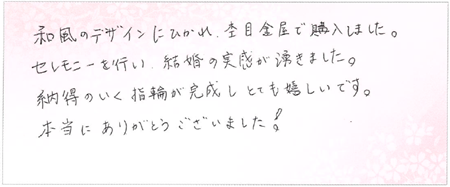 和風のデザインにひかれ、杢目金屋で購入しました。
セレモニーを行い、結婚の実感が湧きました。
納得のいく指輪が完成しとても嬉しいです。
本当にありがとうございました!